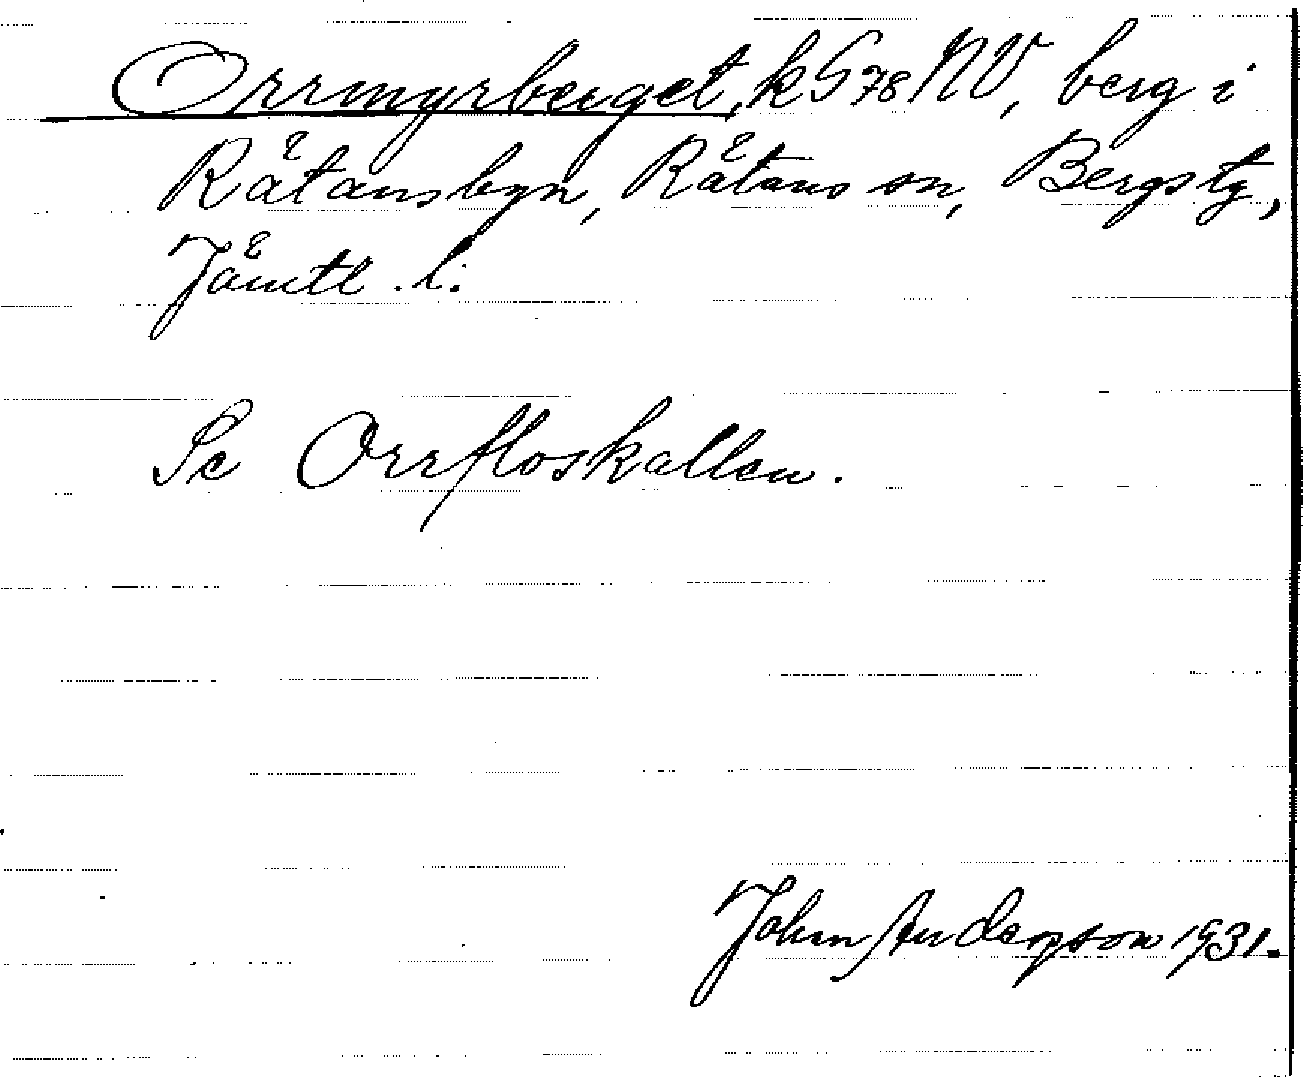 Orrmyrberget, kG 78 NV, berg i
Rätansbyn, Rätans sn, Bergs tg,
Jämtl. l.
Se Orrfloskallen.
John Anderson 1931.